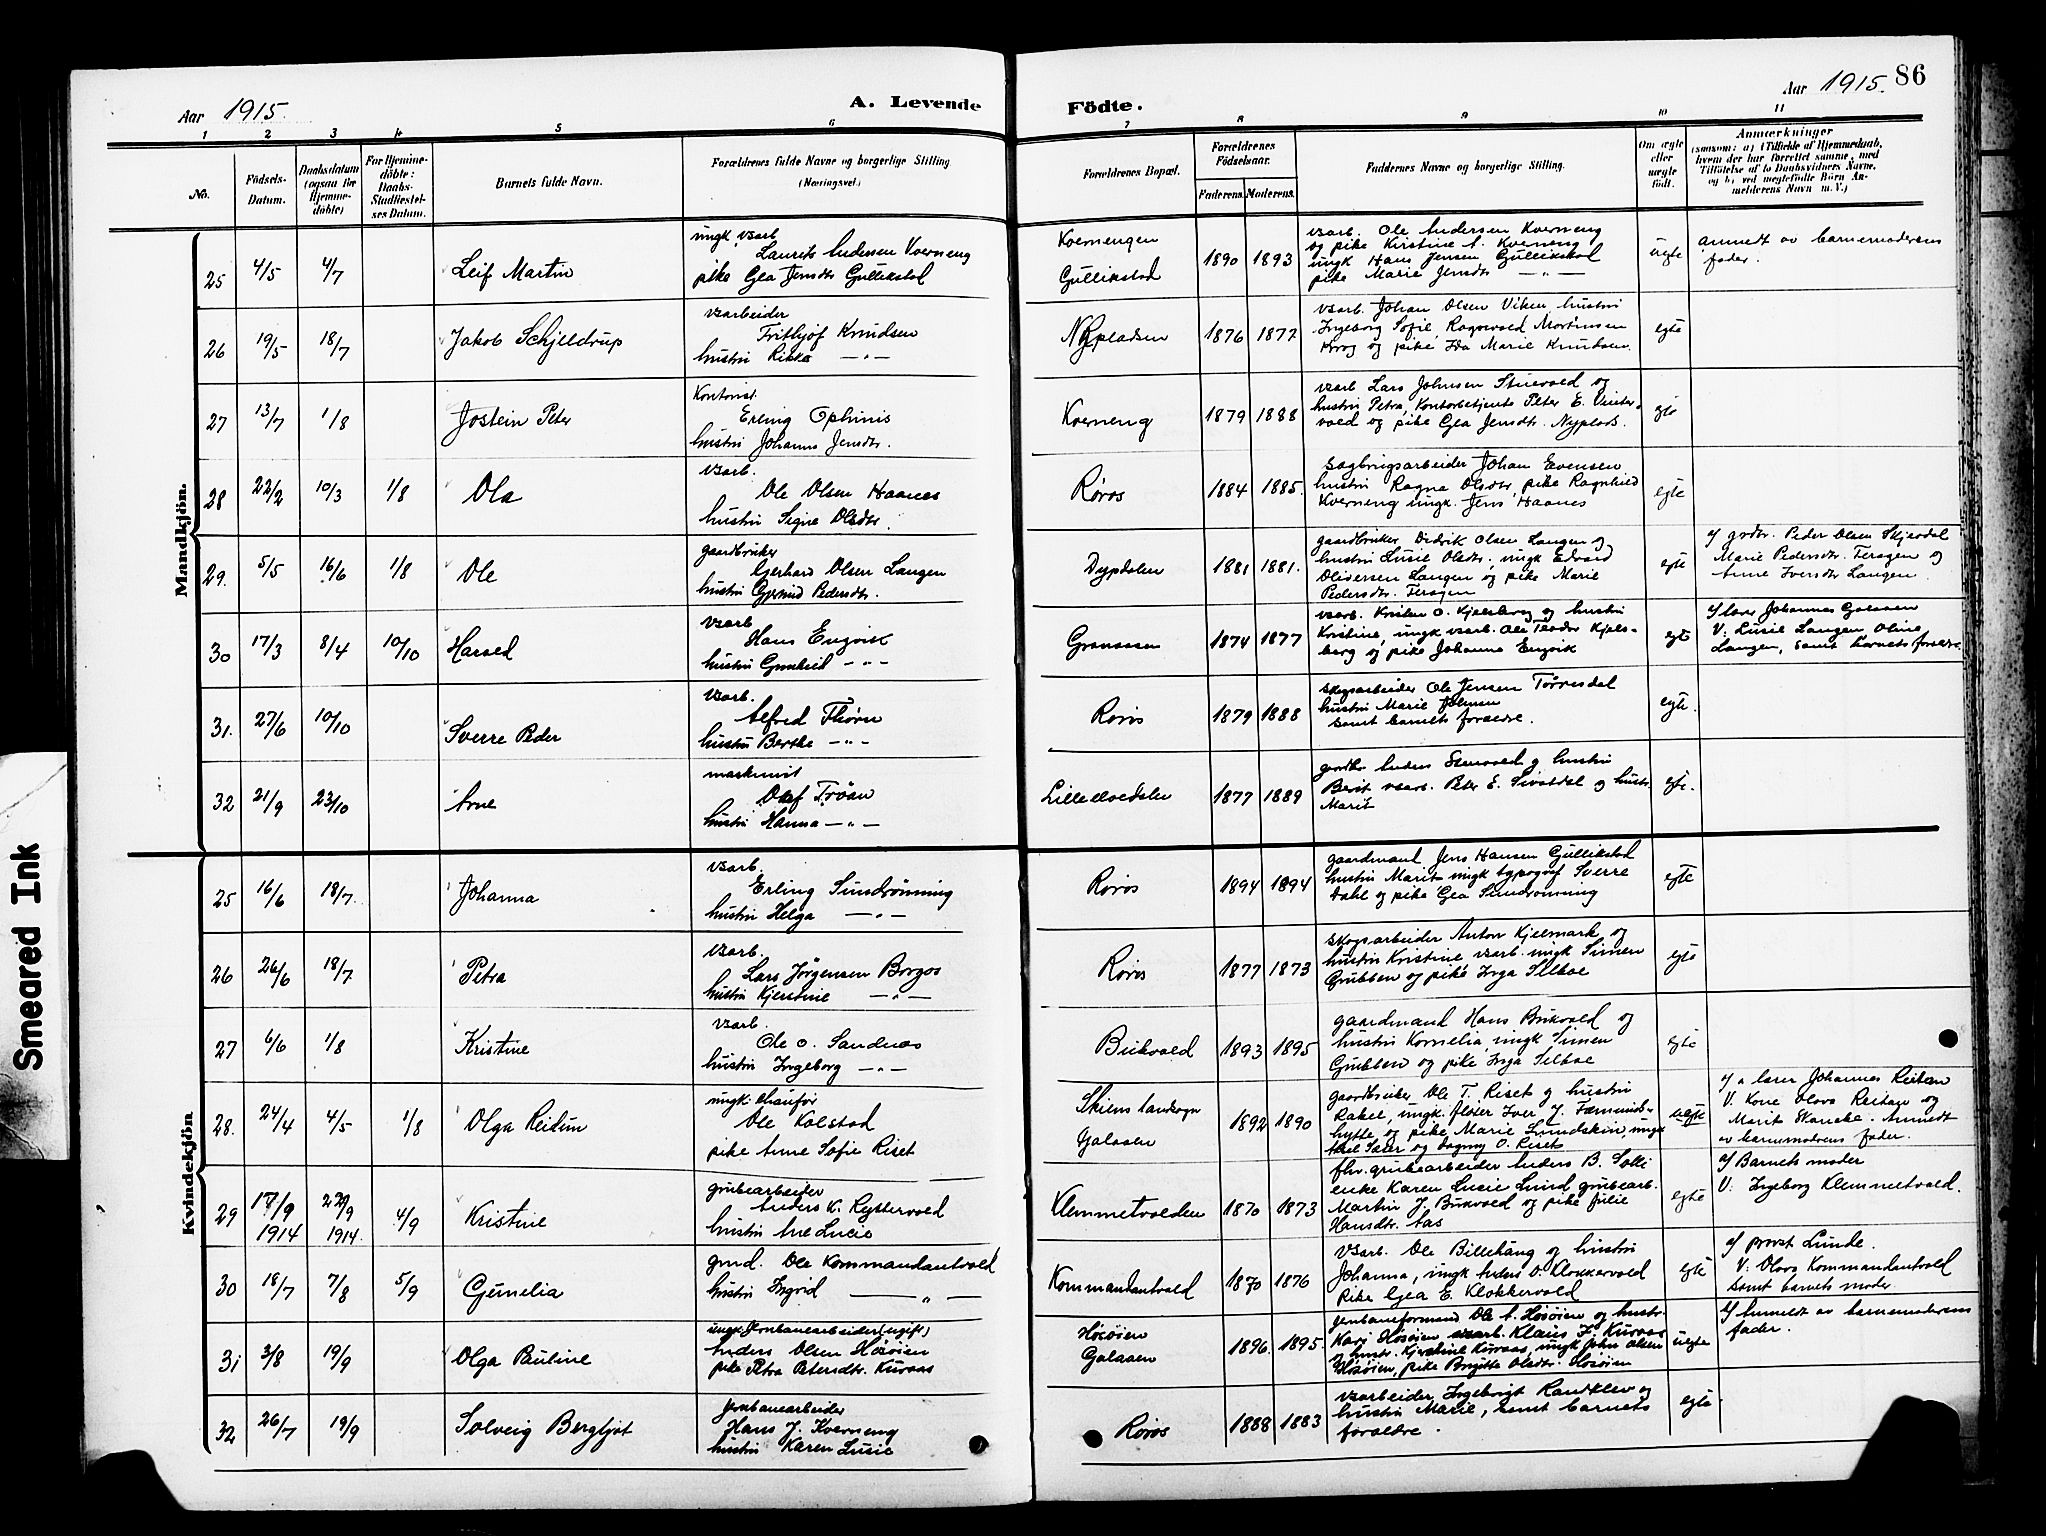 Aar 1915.
A. Levende Födte.
Aar 1915. 86
1 2 3 4 5 6 7 8 9 10 11
No.
Födsels-
Datum.
Daabsdatum
(ogsaa for
Hjemme-
döbte)
For Hjemme-
döbte:
Daabs-
Stadfæstel-
ses Datum.
Barnets fulde Navn.
Forældrenes fulde Navne og borgerlige Stilling
(Næringsvei.)
Forældrenes Bopæl.
Forældrenes
Födselsaar.
Faderens. Moderens.
Faddernes Navne og borgerlige Stilling.
Om ægte
eller
uægte
född.
Anmærkninger
Mandkjön.
25 4/5 4/7 Leif Martin
ungk. vsarb
Laurits Andersen Kverneng
pike Gea Jensdtr Gullikstad
Kvernengen
Gullikstad
1890 1893
vsarb. Ole Andersen Kverneng
og pike Kristine A. Kverneng
ungk Hans Jensen Gullikstad
pike Marie Jensdtr —"—
uegte
anmeldt av barnemoderens
fader.
26 19/5 18/7 Jakob Schjeldrup
vsarbeider
Frithjof Knudsen
hustru Rikka —"—
Nypladsen
1876 1877
vsarb. Johan Olsen Viken hustru
Ingeborg Sofie Ragnvald Mortinsen
Krog og pike Ida Marie Knudsen.
egte
27 13/7 1/8 Jostein Peter
Kontorist.
Erling Ophus
hustru Johanna Jensdtr.
Kverneng
1879 1888
vsarb Lars Johnsen Stuevold og
hustru Petra, Kontorbetjent Peter E. Vinter-
vold og pike Gea Jensdtr. Nyplads.
egte
28 22/2 10/3 1/8 Ola
vsarb.
Ole Olsen Haanes
hustru Signe Olsdtr.
Røros
1884 1885.
Sagbrugsarbeider Johan Evensen
hustru Ragna Olsdtr, pike Ragnhild
Kverneng ungk. Jens Haanes
egte
29. 5/5 16/6 1/8 Ole
gaardbruker
Gerhard Olsen Langen
hustru Gjertrud Pedersdtr.
Dypdalen
1881 1881.
gaardbruker Didrik Olsen Langen og
hustru Lusie Olsdtr, ungk Edvard
Olidersen Langen og pike Marie
Pedersdtr. Feragen
egte
Peder Olsen Skjevdal
Marie Pedersdtr. Feragen og
Anne Iversdtr Langen
30 17/3 8/4 10/10 Harald
vsarb
Hans Engvik
hustru Gunhild —"—
Grønaasen
1874 1877
vsarb. Kristen O. Kjelsberg og hustru
Kristine, ungk vsarb. Ole Teodor Kjels-
berg og pike Johanna Engvik
egte
Johannes Galaaen
V. Lusie Langen Oline
Langen, samt barnets forældre.
31. 27/6 10/10 Sverre Peder
vsarb.
Alfred Thorn
hustru Berthe —"—
Røros
1879 1888
skogsarbeider Ole Jensen Tørresdal
hustru Marie Johnsen
samt barnets forældre.
egte.
32 21/9 23/10 Arne
maskinist
Olaf Trøan
hustru Hanna —"—
Lilleelvedalen
1877 1889
gaardbr Anders Stenvold og hustru
Berit vsarb. Peter E. Sivertdal og hustr
Marit
egte.
Kvindekjön
25 16/6 18/7 Johanna
vsarb.
Erling Sundrønning
hustru Helga —"—
Røros
1894 1894
gaardmand Jens Hansen Gullikstad
hustru Marit ungk typograf Sverre
Dahl og pike Gea Sundrønning
egte
26 26/6 18/7 Petra
vsarb.
Lars Jørgensen Borgos
hustru Kjerstine —"—
Røros
1877 1873
skogsarbeider Anton Kjelmark og
hustru Kristine vsarb. ungk Simen
Grubben og pike Inga Selboe
egte
27 6/6 1/8 Kristine
vsarb.
Ole O. Sandnæs
hustru Ingeborg —"—
Bukvold
1893 1895
gaardmand Hans Bukvold og
hustru Kornelia, ungk Simen
Grubben og pike Inga Selboe
egte
28. 24/4 4/5 1/8 Olga Reidun
ungk. chaufør
Ole Kolstad
pike Anne Sofie Riset
Skiens landsogn
Galaaen
1892 1890
gaardbruker Ole T. Riset og hustru
Rakel, ungk. fløter Iver J. Fæmunds-
hytte og pike Marie Lundskin, ungk
og Dagny O. Riset
uegte
lærer Johannes Reitan
V. Kone Olava Reitan og
Marit Skancke. Anmeldt
av barnemodrens fader.
29 17/9 1914 22/9 1914. 4/9 Kristine
grubearbeider
Anders K. Ryttervold
hustru Ane Lucie
Klemmetvolden
1870 1873
fhv. grubearbeider Anders B. Solli
enke Karen Lucie Lund grubearb.
Martin J. Bukvold og pike Julie
Hansdtr. Aas
egte
af Barnets moder
V. Ingeborg Klemmetvold.
30 18/7 7/8 5/9 Gunelia
gmd. Ole Kommandantvold
hustru Ingrid —"—
Kommandantvold
1870 1876
Vsarb. Ole Billehaug og hustru
Johanna, ungk Anders O. Klokkervold
Pike Gea E. Klokkervold
egte
af provst Lunde.
V. Olava Kommandantvold
samt barnets moder.
31 3/8 19/9 Olga Pauline
ungk. Jernbanearbeider (ugift)
Anders Olsen Høsøien
pike Petra Petersdtr. Kurvas
Høsøien
Galaaen
1896. 1895.
Jernbaneformand Ole A. Høsøien og hustr.
Kari Høsøien vsarb. Klaus F. Kurvas
og hustr. Kjerstine Kurvas, ungk John Olsen
Høsøien, pike Brgitte Olsdtr. Høsøien
uegte
Anmeldt av barnemoderens
fader.
32 26/7 19/9 Solveig Bergljot
Jernbanearbeider
Hans J. Kverneng
hustru Karen Lusie
Røros
1888 1883
vsarbeider Ingebrigt Randklev og
hustru Marie, samt barnets
forældre.
egte
Smeared Ink